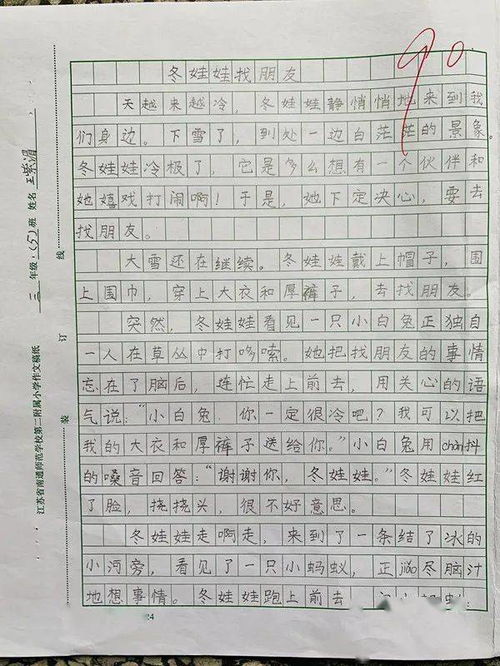 90
冬娃娃找朋友
天越来越冷，冬娃娃静悄悄地来到我
们身边。下雪了，到处一边白茫茫的景象
冬娃娃冷极了，它是多么想有一个伙伴和
她嬉戏打闹啊！于是，她下定决心，要去
找朋友。
大雪还在继续。冬娃娃戴上帽子，围
上围巾，穿上大衣和厚裤子，去找朋友。
突然，冬娃娃看见一只小白兔正独自
一人在草丛中打哆嗦。她把找朋友的事情
忘在了脑后，连忙走上前去，用关心的语
气说：“小白兔，你一定很冷吧？我可以把
我的大衣和厚裤子送给你。”小白兔用chàn抖
的嗓音回答：“谢谢你，冬娃娃。”冬娃娃红
了脸，挠挠头，很不好意思。
冬娃娃走啊走，来到了一条结了冰的
小河旁，看见了一只小蚂蚁，正jiǎo尽脑汁
地想事情。冬娃娃跑上前去
24
江苏省南通师范学校第二附属小学作文稿纸
三年级(5)班 姓名
装 订 线